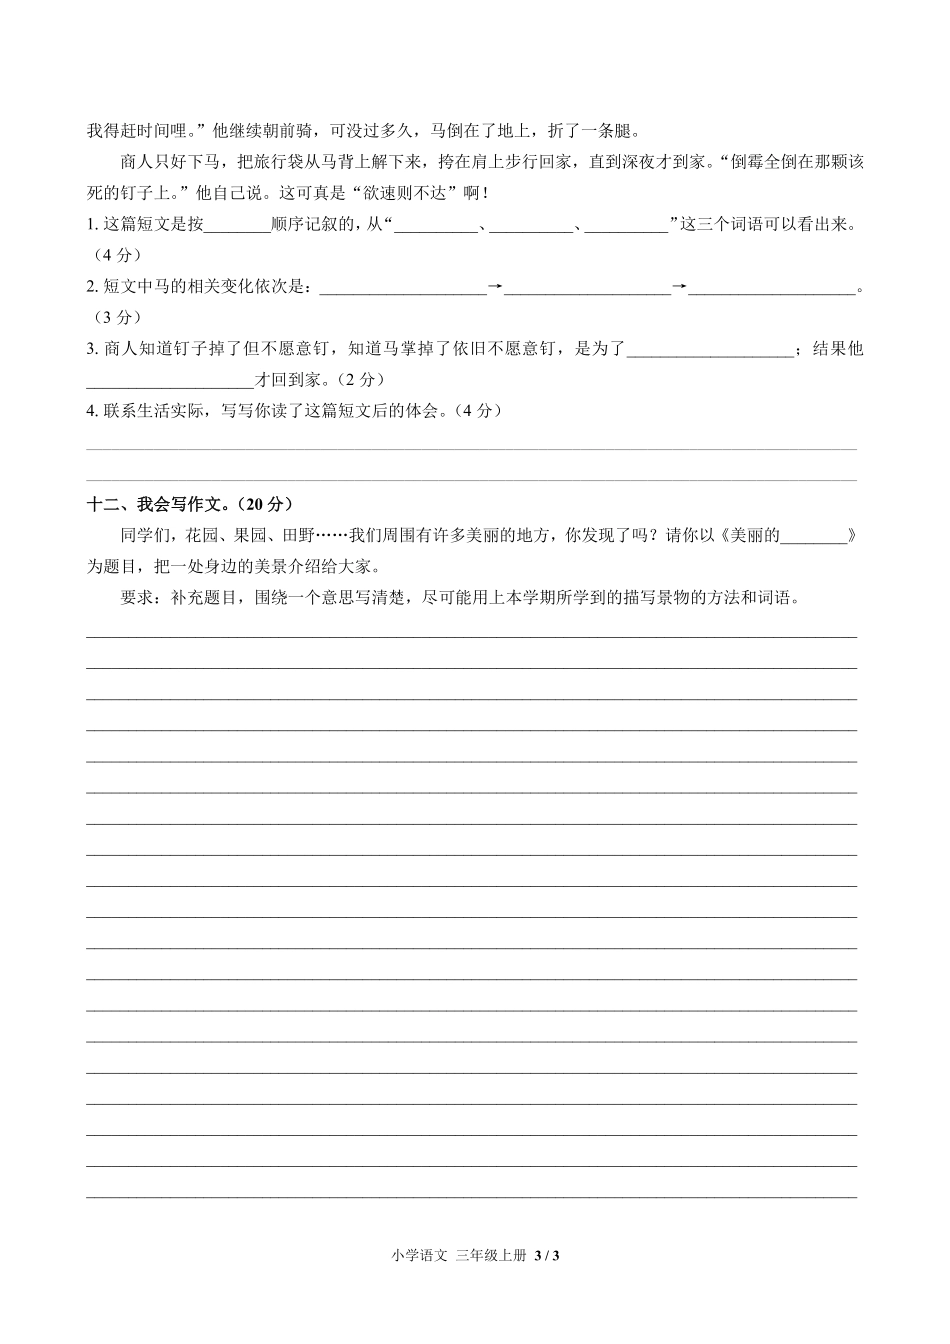 我得赶时间哩。”他继续朝前骑，可没过多久，马倒在了地上，折了一条腿。
商人只好下马，把旅行袋从马背上解下来，挎在肩上步行回家，直到深夜才到家。“倒霉全倒在那颗该
死的钉子上。”他自己说。这可真是“欲速则不达”啊！
1. 这篇短文是按________顺序记叙的，从“__________、__________、__________”这三个词语可以看出来。
（4 分）
2. 短文中马的相关变化依次是：____________________→____________________→____________________。
（3 分）
3. 商人知道钉子掉了但不愿意钉，知道马掌掉了依旧不愿意钉，是为了____________________；结果他
____________________才回到家。（2 分）
4. 联系生活实际，写写你读了这篇短文后的体会。（4 分）
十二、我会写作文。（20 分）
同学们，花园、果园、田野……我们周围有许多美丽的地方，你发现了吗？请你以《美丽的________》
为题目，把一处身边的美景介绍给大家。
要求：补充题目，围绕一个意思写清楚，尽可能用上本学期所学到的描写景物的方法和词语。
小学语文 三年级上册 3 / 3